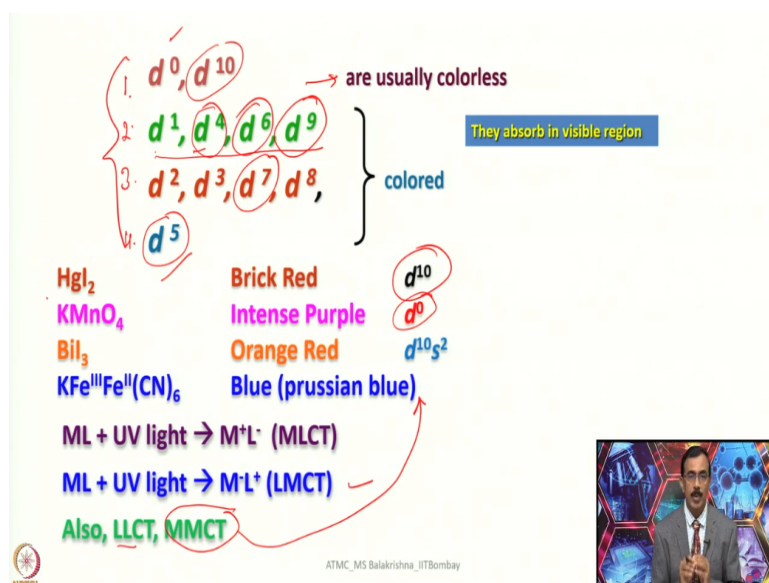 1. d⁰, d¹⁰
→ are usually colorless
2. d¹, d⁴, d⁶, d⁹
They absorb in visible region
3. d², d³, d⁷, d⁸,
colored
4. d⁵
HgI₂ Brick Red d¹⁰
KMnO₄ Intense Purple d⁰
BiI₃ Orange Red d¹⁰s²
KFeᴵᴵᴵFeᴵᴵ(CN)₆ Blue (prussian blue)
ML + UV light → M⁺L⁻ (MLCT)
ML + UV light → M⁻L⁺ (LMCT)
Also, LLCT, MMCT
ATMC_MS Balakrishna_IITBombay